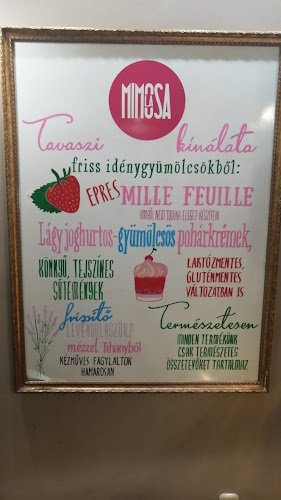 MIMOSA
LA
Tavaszi kínálata
friss idénygyümölcsökből:
EPRES MILLE FEUILLE
AMIBŐL NEM TUDUNK ELEGET KÉSZÍTENI
Lágy joghurtos-gyümölcsös pohárkrémek,
KÖNNYŰ, TEJSZÍNES
SÜTEMÉNYEK
LAKTÓZMENTES,
GLUTÉNMENTES
VÁLTOZATBAN IS
frissítő
LEVENDULASZÖRP
mézzel Tihanyból
KÉZMŰVES FAGYLALTOK
HAMAROSAN
Természetesen
MINDEN TERMÉKÜNK
CSAK TERMÉSZETES
ÖSSZETEVŐKET TARTALMAZ